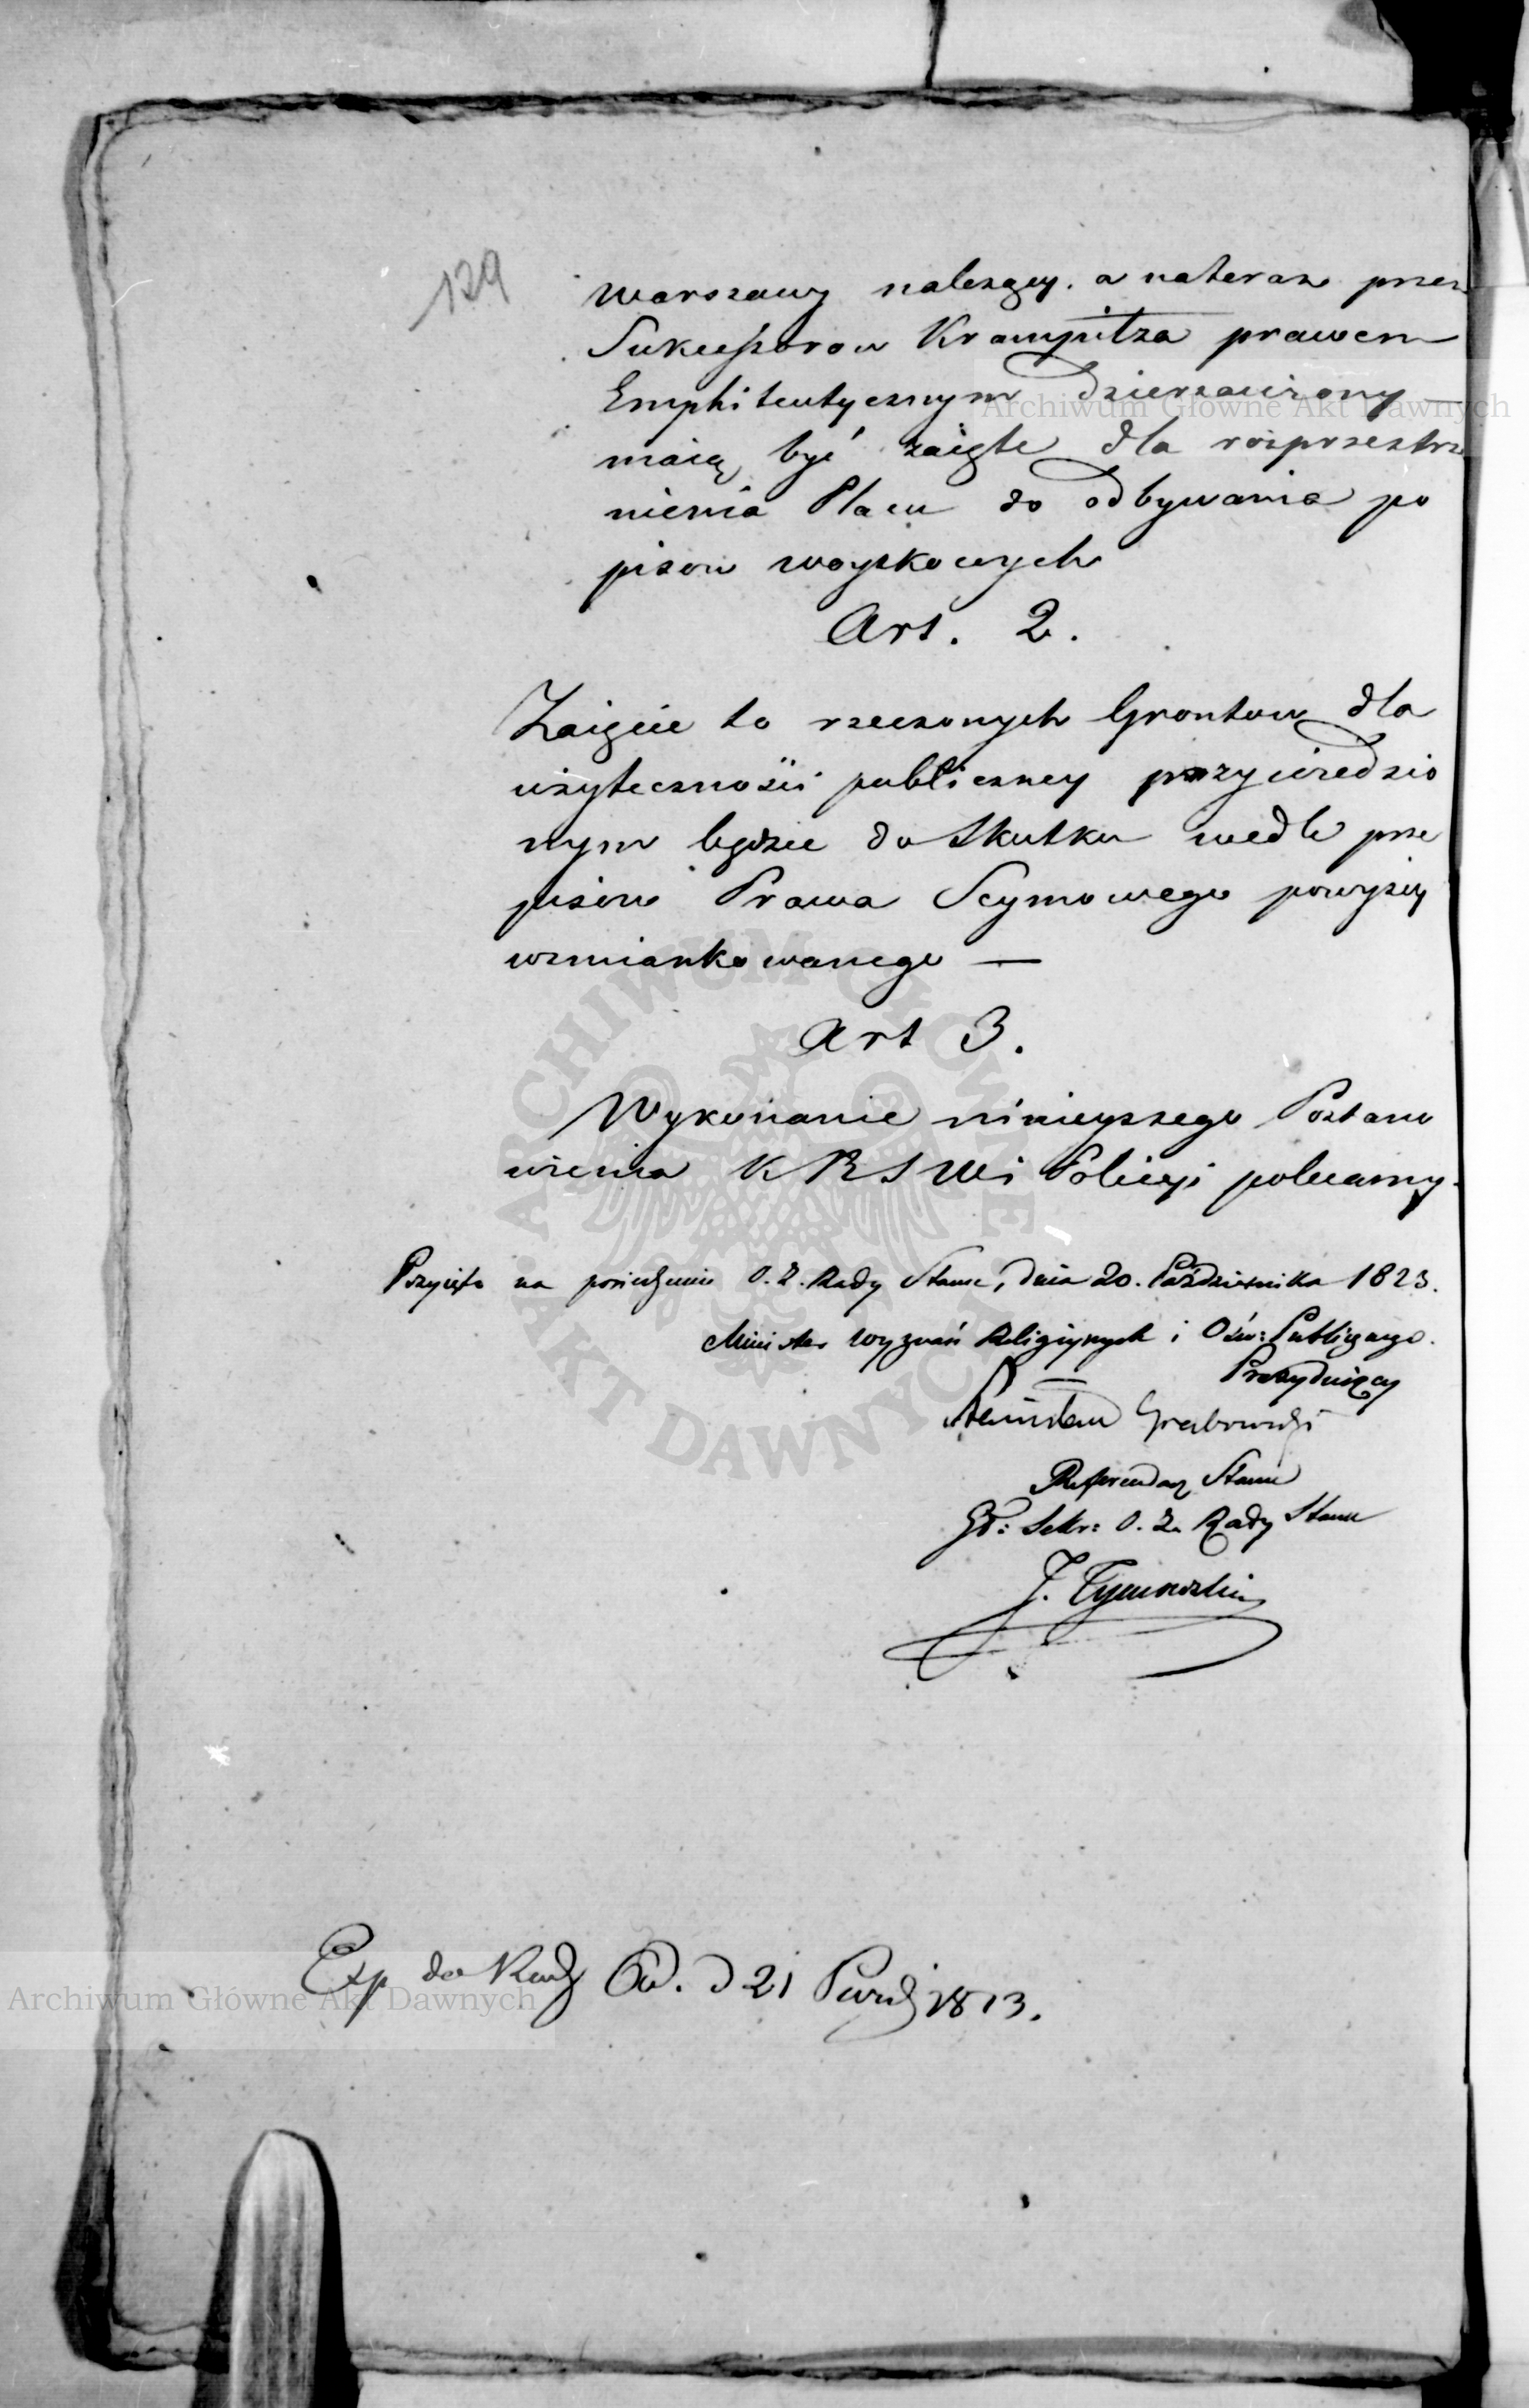 129
Warszawy należący. a na teraz przez
Sukcessorow Krampitza prawem
Emphiteutycznym dzierzawiony —
maią być zaięte dla rozprzestrze
nienia Placu do odbywania po
pisow woyskowych
Art. 2.
Zaięcie to rzeczonych Grontow dla
użyteczności publiczney przywiedzio
nym będzie do skutku wedle prze
pisow Prawa Seymowego powyżey
wzmiankowanego —
Art 3.
Wykonanie ninieyszego Postano
wienia K R S W i Policyi polecamy.
Przyięto na posiedzeniu O. Z. Rady Stanu, dnia 20. Października 1823.
Minister Wyznań Religiynych i Ośw: Publicznego.
Prezyduiący
Stanisław Grabowski
Referendarz Stanu
Gł: Sekr: O. Z. Rady Stanu
J. Tymowski
Exp do Rady d 21 1823.
Archiwum Główne Akt Dawnych
ARCHIWUM GŁÓWNE
AKT DAWNYCH
Archiwum Główne Akt Dawnych